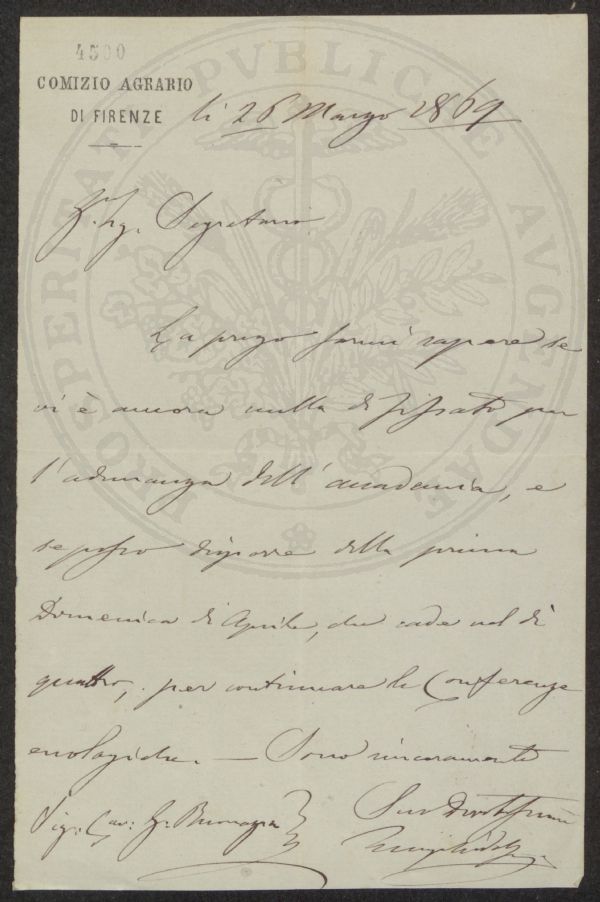 4500
COMIZIO AGRARIO
DI FIRENZE
li 26 Marzo 1869
PROSPERITATI PVBLICAE AVGENDAE
Sig. Segretario
La prego farmi sapere se
vi è ancora nulla di fissato per
l'adunanza dell'accademia, e
se posso disporre della prima
Domenica di Aprile, che cade nel dì
quattro, per continuare le Conferenze
enologiche. — Sono sinceramente
Sig: Cav:
Suo